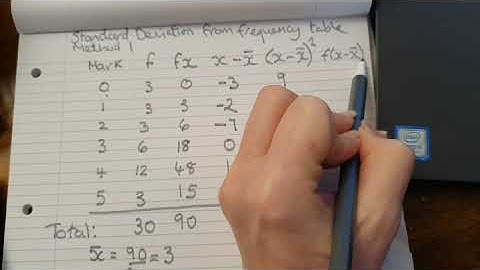 Standard Deviation from frequency table
Method 1
Mark f fx x-x̄ (x-x̄)² f(x-x̄)
0 3 0 -3 9
1 3 3 -2
2 3 6 -1
3 6 18 0
4 12 48 1
5 3 15
Total: 30 90
x̄ = 90 = 3
intel